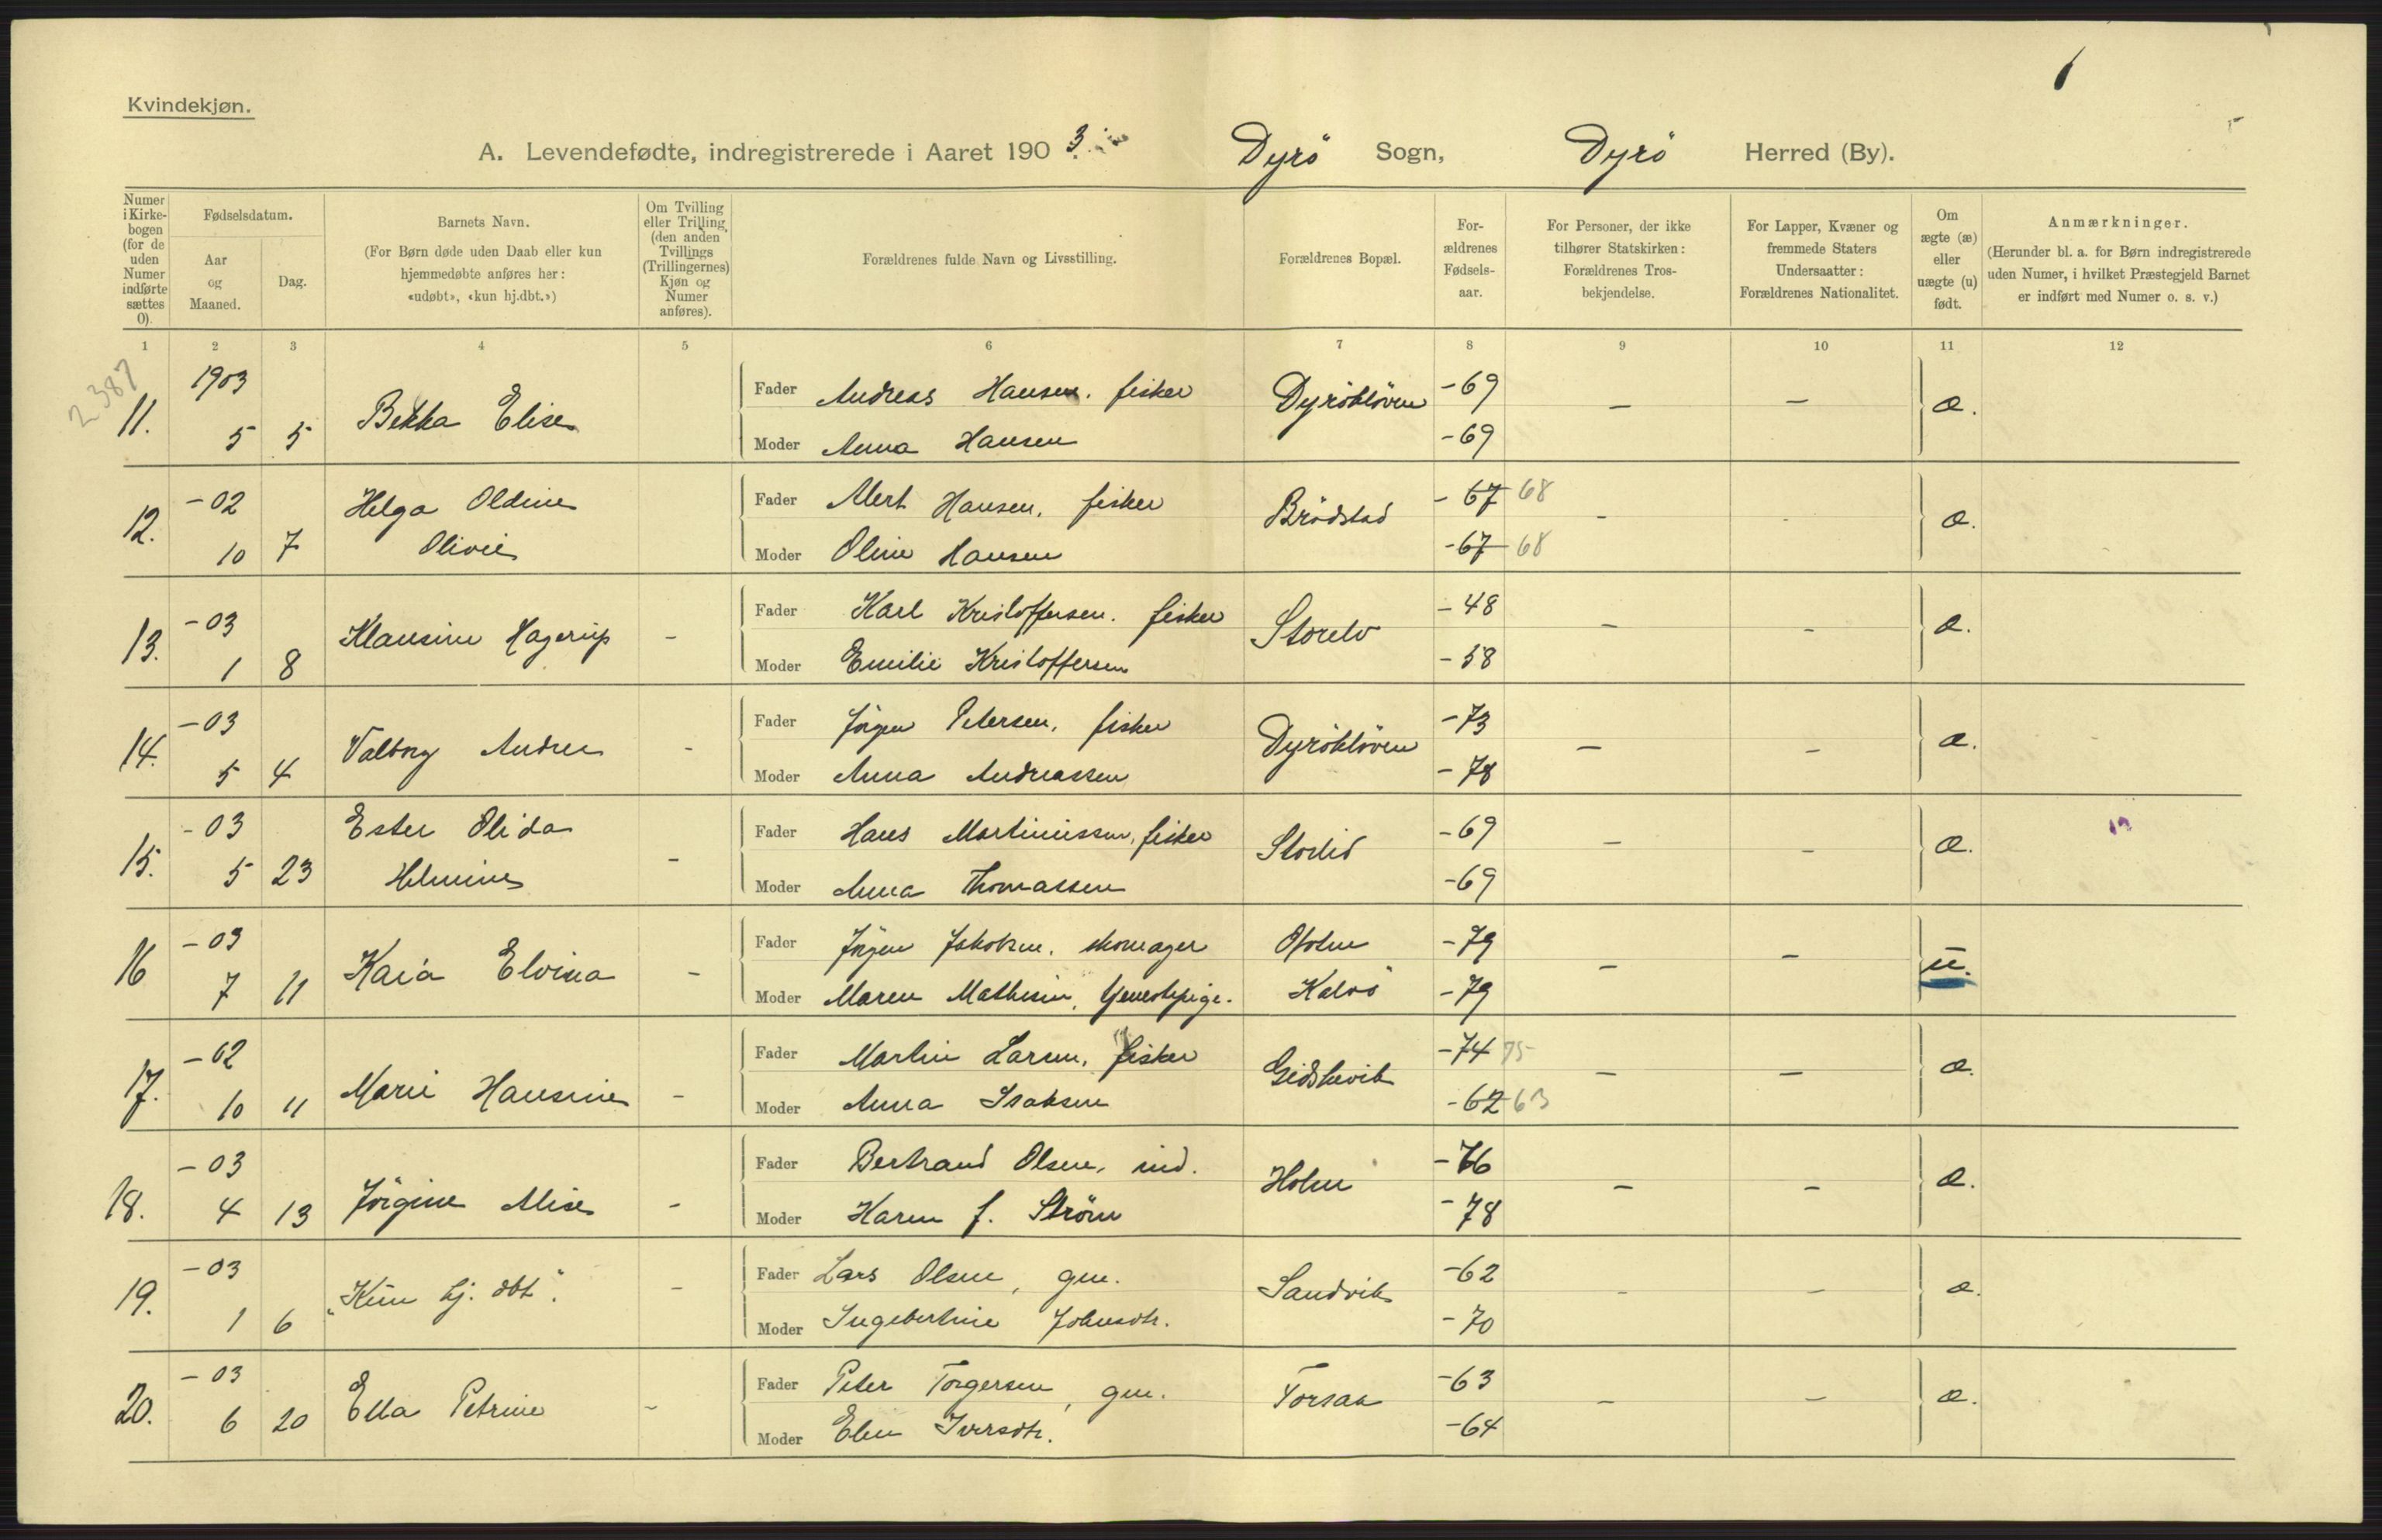 Kvindekjøn.
A. Levendefødte, indregistrerede i Aaret 1903. Dyrö Sogn, Dyrö Herred (By).
Numer i Kirkebogen (for de uden Numer indførte sættes 0).
Fødselsdatum.
Aar og Maaned.
Dag.
Barnets Navn.
(For Børn døde uden Daab eller kun hjemmedøbte anføres her: «udøbt», «kun hj.dbt.»)
Om Tvilling eller Trilling, (den anden Tvillings (Trillingernes) Kjøn og Numer anføres).
Forældrenes fulde Navn og Livsstilling.
Forældrenes Bopæl.
For-ældrenes Fødsels-aar.
For Personer, der ikke tilhører Statskirken: Forældrenes Tros-bekjendelse.
For Lapper, Kvæner og fremmede Staters Undersaatter: Forældrenes Nationalitet.
Om ægte (æ) eller uægte (u) født.
Anmærkninger.
(Herunder bl. a. for Børn indregistrerede uden Numer, i hvilket Præstegjeld Barnet er indført med Numer o. s. v.)
1 2 3 4 5 6 7 8 9 10 11 12
2387
11. 1903 5 5 Bekka Elise
Fader Andreas Hansen. fisker Dyröklöven -69 — — æ.
Moder Anna Hansen -69
12. -02 10 7 Helga Oldine Olivie
Fader Alert Hansen, fisker Brödstad -67 68 - - æ.
Moder Oline Hansen -67 68
13. -03 1 8 Klausine Hagerup -
Fader Karl Kristoffersen. fisker Storelv -48 - - æ.
Moder Emilie Kristoffersen -58
14. -03 5 4 Valborg Andrea -
Fader Jörgen Petersen, fisker Dyröklöven -73 — - æ.
Moder Anna Andreassen -78
15. -03 5 23 Ester Olida Helmine -
Fader Hans Martinussen, fisker Storlid -69 - - æ.
Moder Anna Thomassen -69
16 -03 7 11 Kaia Elvina -
Fader Jörgen Jakobsen. skomager -79 - - u.
Moder Maren Mathisen, tjenestepige. Kalvö -79
17. -02 10 11 Marie Hansine -
Fader Martin Larsen, fisker Gidskevik -74 75 - - æ.
Moder Anna Isaksen -62 63
18. -03 4 13 Jörgine Alise -
Fader Bertrand Olsen, ind. Holm -76 - - æ.
Moder Karen f. Ström -78
19. -03 1 6 „Kun hj. dbt." -
Fader Lars Olsen, gm. Sandvik -62 - - æ.
Moder Ingebertine Johnsdtr. -70
20. -03 6 20 Ella Petrine -
Fader Peter Torgersen, gm. Forsaa -63 - - æ.
Moder Elen Iversdtr. -64